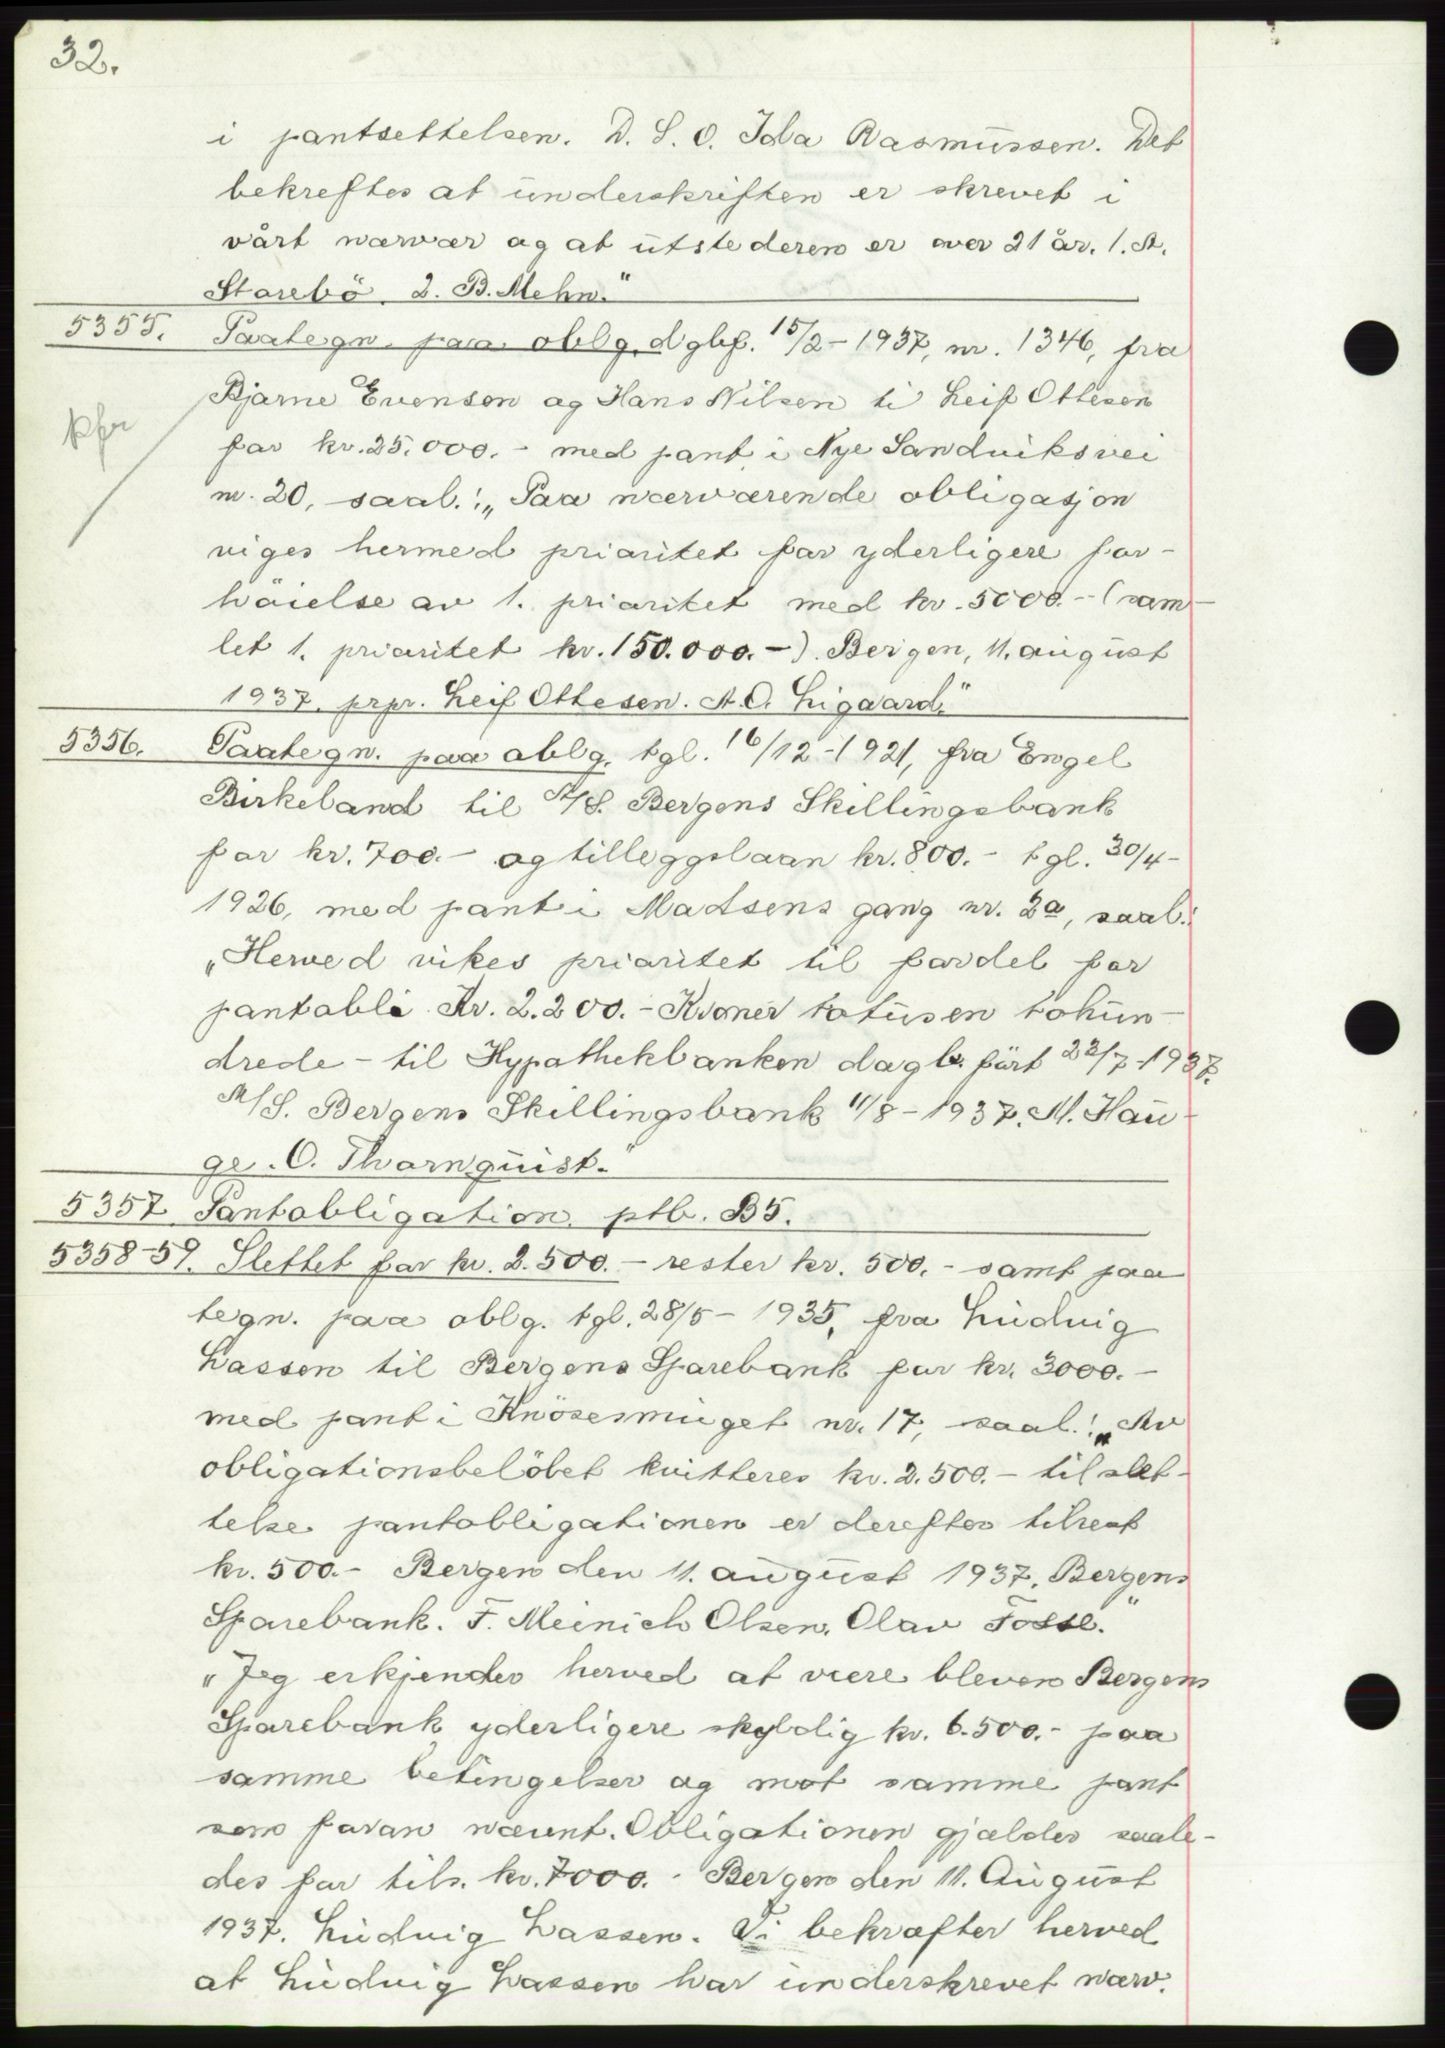 32.
i pantsettelsen. D. S. O. Ida Rasmussen. Det
bekreftes at underskriften er skrevet i
vårt nærvær og at utstederen er over 21 år. 1. A.
Storebö. 2. B. Mehn."
5355. Paategn. paa oblg. dgbf. 15/2-1937, nr. 1346, fra
Bjarne Evensen og Hans Nilsen ti Leif Ottesen
for kr. 25.000.- med pant i Nye Sandviksvei
nr. 20, saal.: „Paa nærværende obligasjon
viges hermed prioritet for yderligere for-
höielse av 1. prioritet med kr. 5000.- (sam-
let 1. prioritet kr. 150.000.-). Bergen, 11. august
1937. prpr. Leif Ottesen. A. O. Ligaard."
5356. Paategn. paa oblg. tgl. 16/12-1921, fra Engel
Birkeland til A/S. Bergens Skillingsbank
for kr. 700.- og tilleggslaan kr. 800.- tgl. 30/4-
1926, med pant i Madsens gang nr. 2a, saal.:
„Herved vikes prioritet til fordel for
pantobli Kr. 2.200.- Kroner totusen tohun-
drede - til Hypothekbanken dagb. fört 22/7-1937.
A/S. Bergens Skillingsbank 11/8-1937. M. Hau-
ge. O. Thornquist."
5357 Pantobligation. ptb. B5.
5358-59. Slettet for kr. 2.500.- rester kr. 500.- samt paa
tegn. paa oblg. tgl. 28/5-1935, fra Ludvig
Lassen til Bergens Sparebank for kr. 3000.-
med pant i Knösesmuget nr. 17, saal.: „Av
obligationsbelöbet kvitteres kr. 2.500.- til slet-
telse pantobligationen er derefter tilrest
kr. 500.- Bergen den 11. august 1937. Bergens
Sparebank. F. Meinich Olsen. Olav Fosse."
„Jeg erkjender herved at være bleven Bergens
Sparebank yderligere skyldig kr. 6.500.- paa
samme betingelser og mot samme pant
som foran nævnt. Obligationen gjælder saale-
des for tils. kr. 7000.- Bergen den 11. August
1937. Ludvig Lassen. Vi bekræfter herved
at Ludvig Lassen har underskrevet nærv.